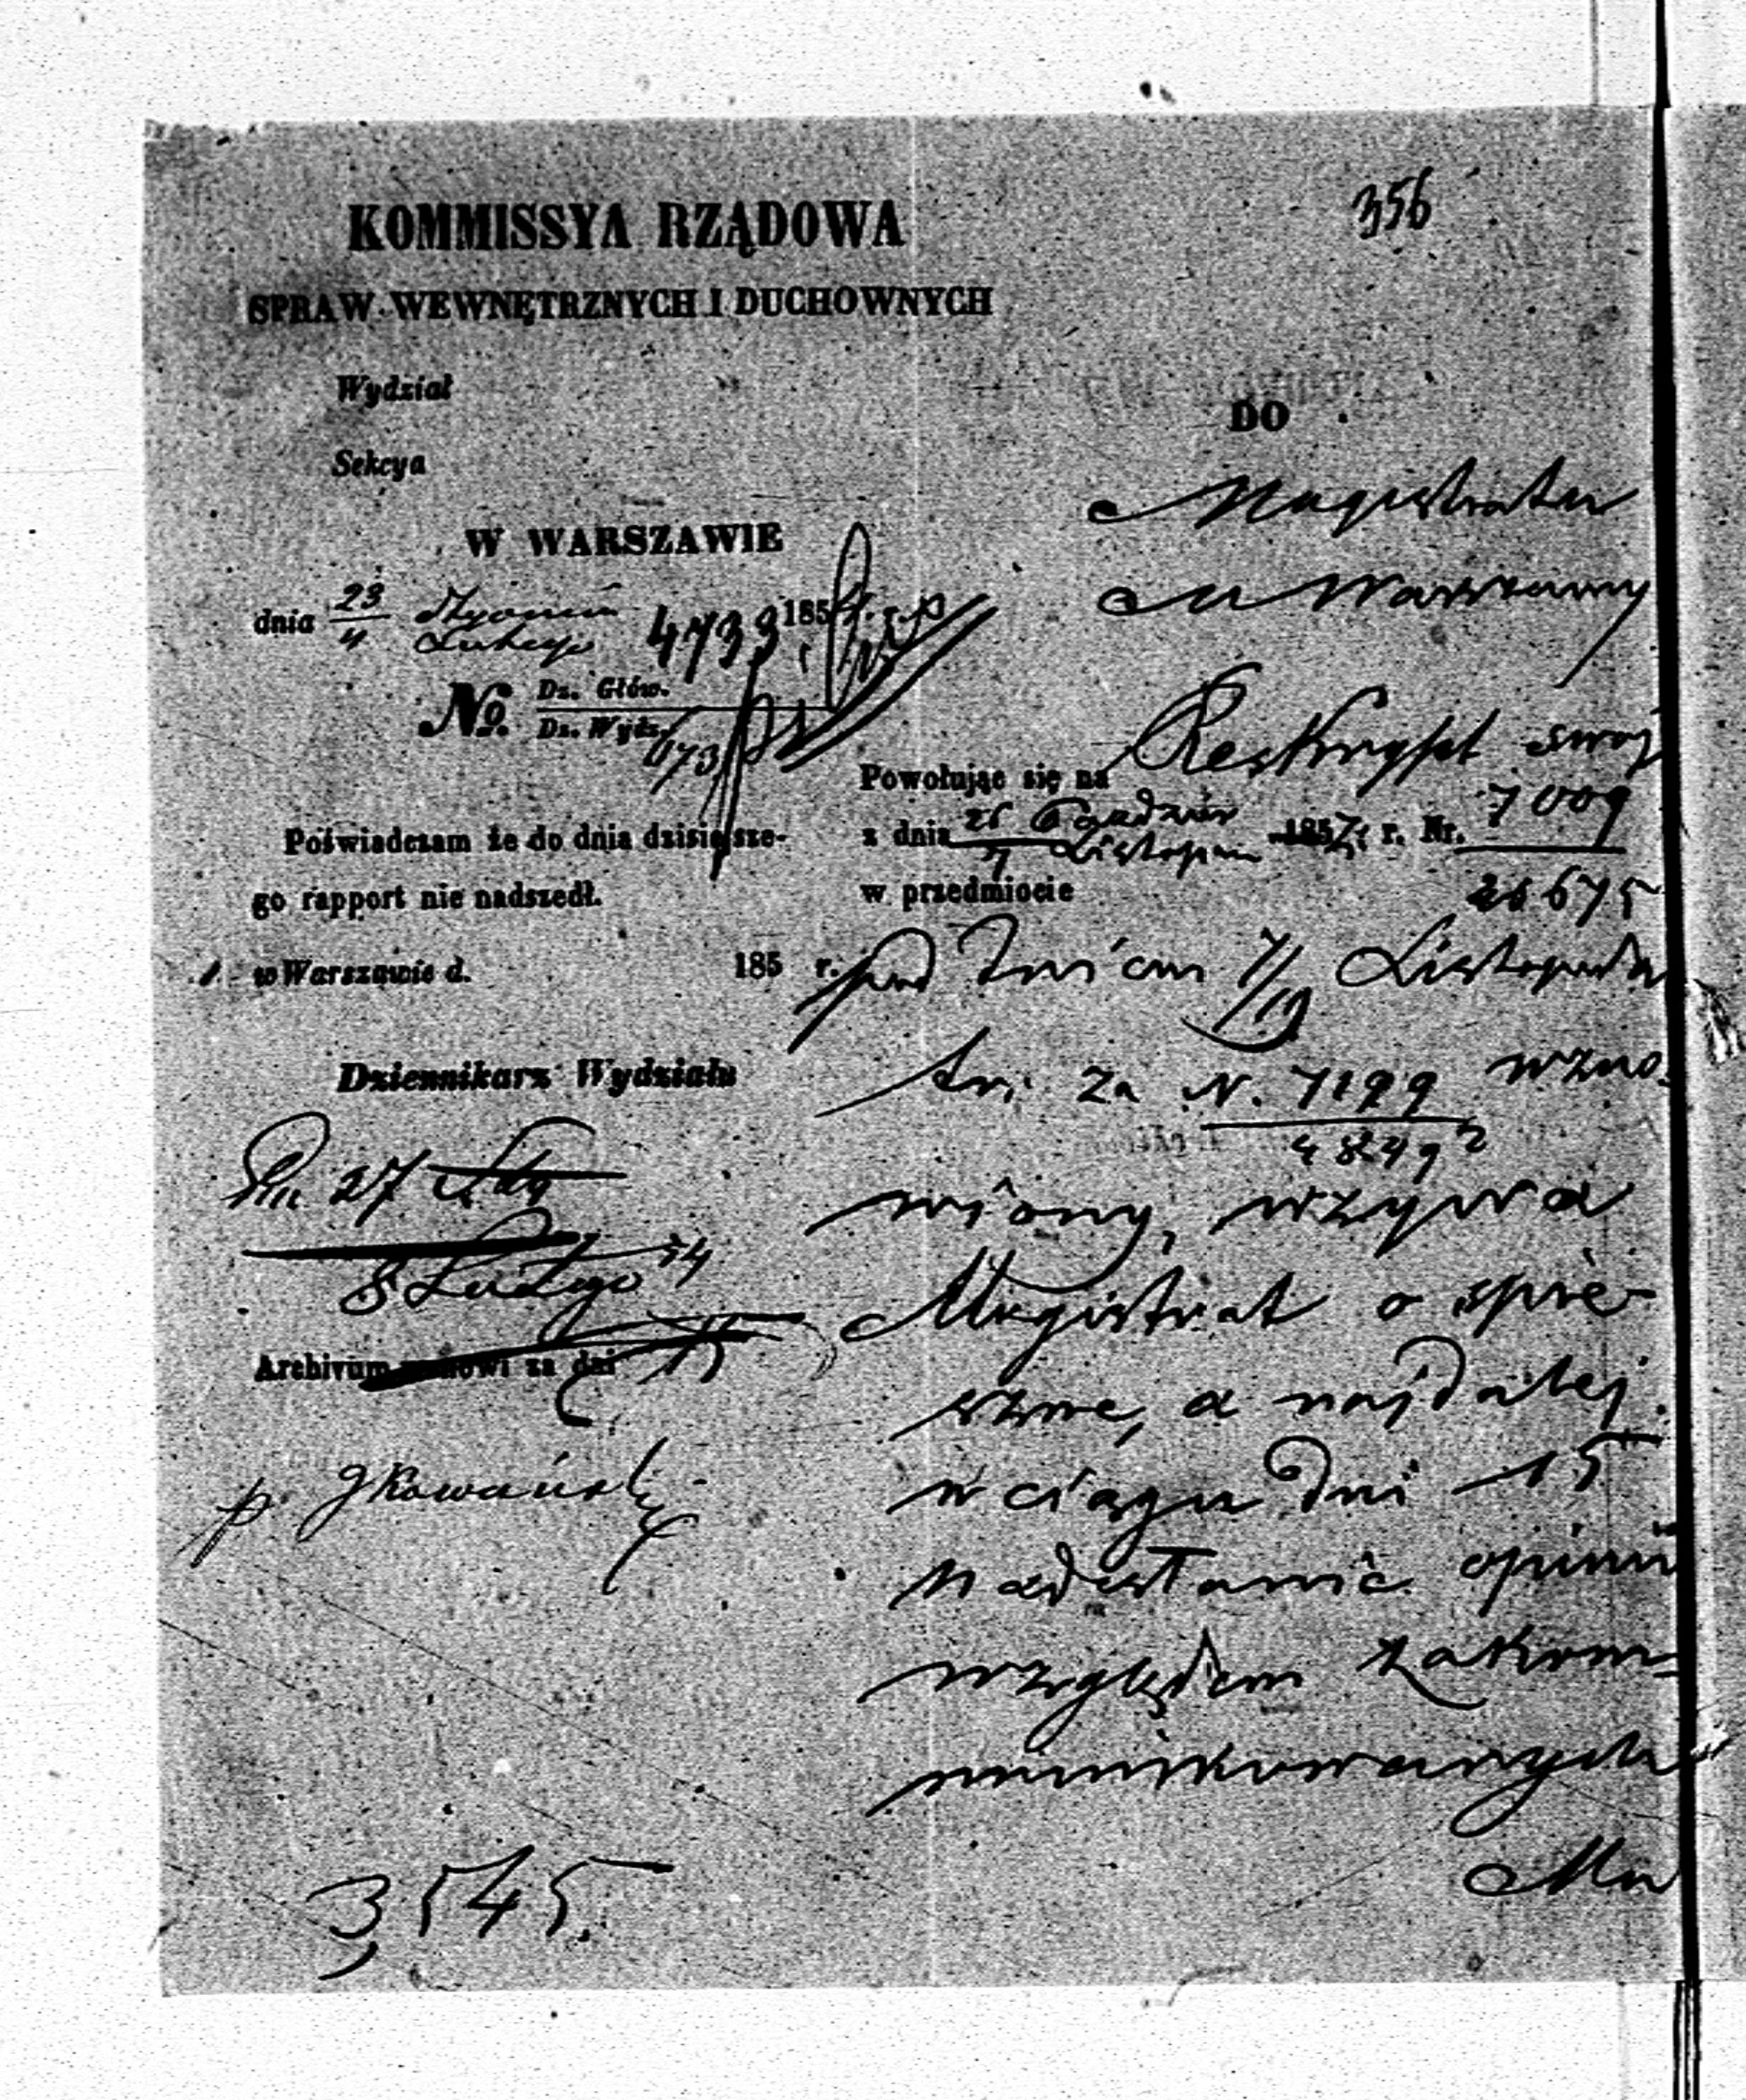 356
KOMMISSYA RZĄDOWA
SPRAW WEWNĘTRZNYCH I DUCHOWNYCH
Wydział
Sekcya
W WARSZAWIE
dnia 23 Stycznia
4 Lutego
185
4733
No. Dz. Głów.
Dz. Wydz.
Poświadczam że do dnia dzisiejsze-
go rapport nie nadszedł.
w Warszawie d. 185 r.
Dziennikarz Wydziału
27
8 Lutego 54
Archivum za dni
3545.
DO
Magistratu
M Warszawy
Powołując się na Reskrypt swój
z dnia 26 Paździer 185 r. Nr. 7009
7 Listopa 26675
w przedmiocie
pod dniem 7/19 Listopada
t.r. za N. 7199 wzno-
48492
wiony, wzywa
Magistrat o spie-
szne, a najdalej
w ciągu dni 15
nadesłanie opinii
względem zakom-
munikowanych